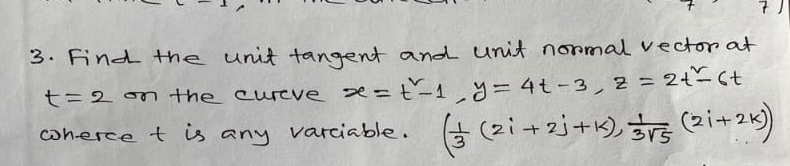 3. Find the unit tangent and unit normal vector at
t = 2 on the curcve x = t²-1, y = 4t-3, z = 2t²-6t
coherce t is any varciable. (1/3 (2i+2j+k), 1/3√5 (2i+2k))